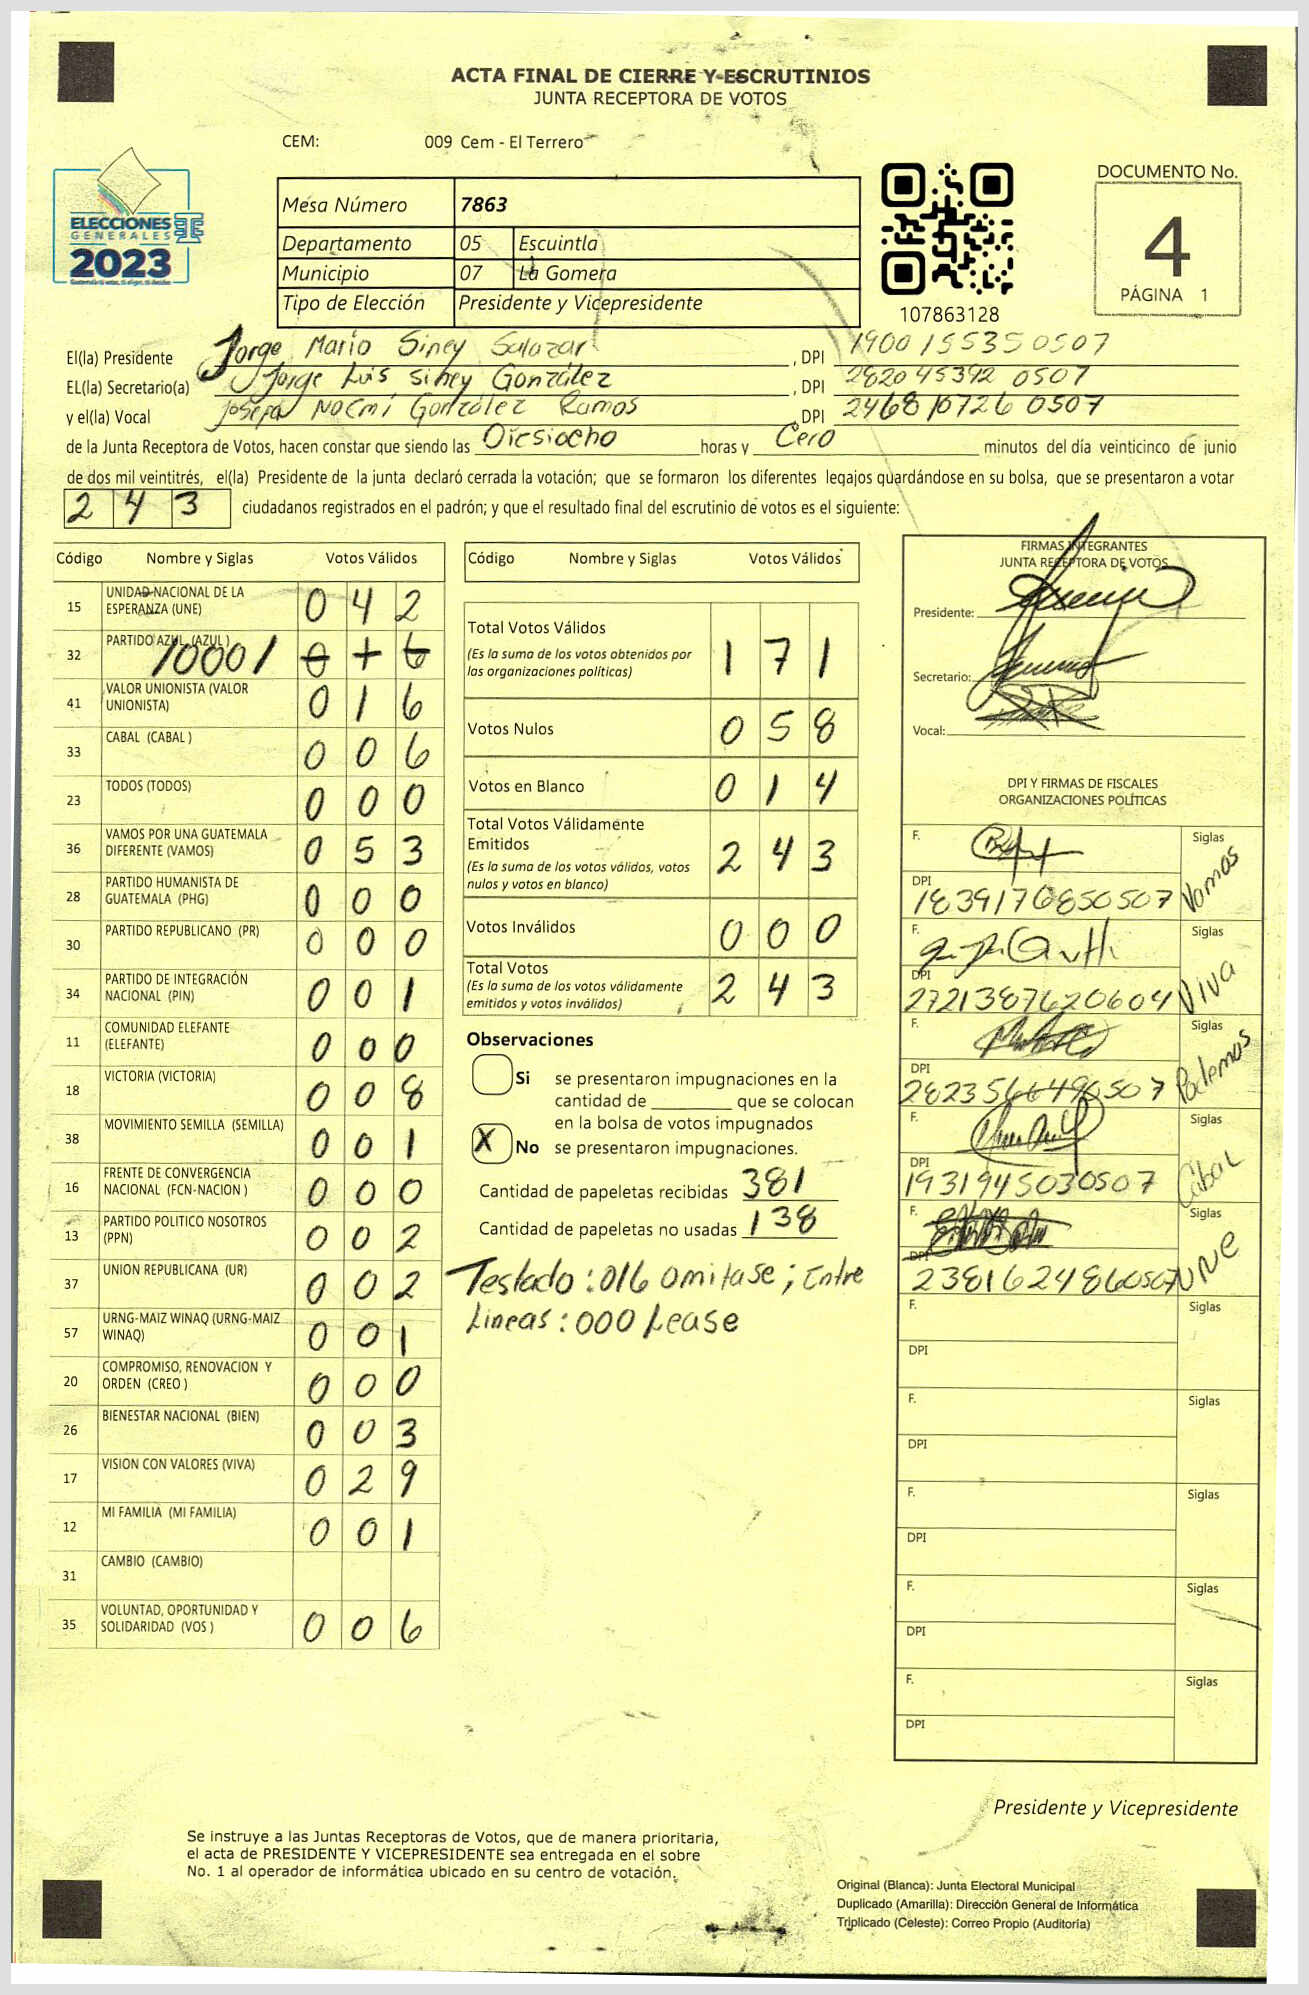 ACTA FINAL DE CIERRE Y ESCRUTINIOS
JUNTA RECEPTORA DE VOTOS
CEM: 009 Cem - El Terrero
ELECCIONES
GENERALES
2023
Mesa Número 7863
Departamento 05 Escuintla
Municipio 07 La Gomera
Tipo de Elección Presidente y Vicepresidente
107863128
DOCUMENTO No.
4
PÁGINA 1
El(la) Presidente Jorge Mario Siney Salazar, DPI 1900155350507
EL(la) Secretario(a) Jorge Luis Siney González, DPI 282045392 0507
y el(la) Vocal Josefa Noemí González Ramos, DPI 246810726 0507
de la Junta Receptora de Votos, hacen constar que siendo las Diesiocho horas y Cero minutos del día veinticinco de junio
de dos mil veintitrés, el(la) Presidente de la junta declaró cerrada la votación; que se formaron los diferentes legajos guardándose en su bolsa, que se presentaron a votar
243 ciudadanos registrados en el padrón; y que el resultado final del escrutinio de votos es el siguiente:
Código Nombre y Siglas Votos Válidos
15 UNIDAD NACIONAL DE LA
ESPERANZA (UNE) 042
32 PARTIDO AZUL (AZUL )
41 VALOR UNIONISTA (VALOR
UNIONISTA) 016
33 CABAL (CABAL ) 006
23 TODOS (TODOS) 000
36 VAMOS POR UNA GUATEMALA
DIFERENTE (VAMOS) 053
28 PARTIDO HUMANISTA DE
GUATEMALA (PHG) 000
30 PARTIDO REPUBLICANO (PR) 000
34 PARTIDO DE INTEGRACIÓN
NACIONAL (PIN) 001
11 COMUNIDAD ELEFANTE
(ELEFANTE) 000
18 VICTORIA (VICTORIA) 008
38 MOVIMIENTO SEMILLA (SEMILLA) 001
16 FRENTE DE CONVERGENCIA
NACIONAL (FCN-NACION ) 000
13 PARTIDO POLITICO NOSOTROS
(PPN) 002
37 UNION REPUBLICANA (UR) 002
57 URNG-MAIZ WINAQ (URNG-MAIZ
WINAQ) 001
20 COMPROMISO, RENOVACION Y
ORDEN (CREO ) 000
26 BIENESTAR NACIONAL (BIEN) 003
17 VISION CON VALORES (VIVA) 029
12 MI FAMILIA (MI FAMILIA) 001
31 CAMBIO (CAMBIO)
35 VOLUNTAD, OPORTUNIDAD Y
SOLIDARIDAD (VOS ) 006
Código Nombre y Siglas Votos Válidos
Total Votos Válidos 171
(Es la suma de los votos obtenidos por
las organizaciones políticas)
Votos Nulos 058
Votos en Blanco 014
Total Votos Válidamente
Emitidos 243
(Es la suma de los votos válidos, votos
nulos y votos en blanco)
Votos Inválidos 000
Total Votos 243
(Es la suma de los votos válidamente
emitidos y votos inválidos)
Observaciones
Si se presentaron impugnaciones en la
cantidad de ________ que se colocan
en la bolsa de votos impugnados
X No se presentaron impugnaciones.
Cantidad de papeletas recibidas 381
Cantidad de papeletas no usadas 138
Testado: 016 omitase; Entre
Lineas: 000 Lease
FIRMAS INTEGRANTES
JUNTA RECEPTORA DE VOTOS
Presidente:
Secretario:
Vocal:
DPI Y FIRMAS DE FISCALES
ORGANIZACIONES POLÍTICAS
F. Siglas
DPI 1839176850507 Vamos
F. Siglas
DPI 2721387620604 Viva
F. Siglas
DPI 2823566490507 Podemos
F. Siglas
DPI 1931945030507 Cabal
F. Siglas
DPI 2381624860507 UNE
F. Siglas
DPI
F. Siglas
DPI
F. Siglas
DPI
F. Siglas
DPI
F. Siglas
DPI
Presidente y Vicepresidente
Se instruye a las Juntas Receptoras de Votos, que de manera prioritaria,
el acta de PRESIDENTE Y VICEPRESIDENTE sea entregada en el sobre
No. 1 al operador de informática ubicado en su centro de votación.
Original (Blanca): Junta Electoral Municipal
Duplicado (Amarilla): Dirección General de Informática
Triplicado (Celeste): Correo Propio (Auditoría)